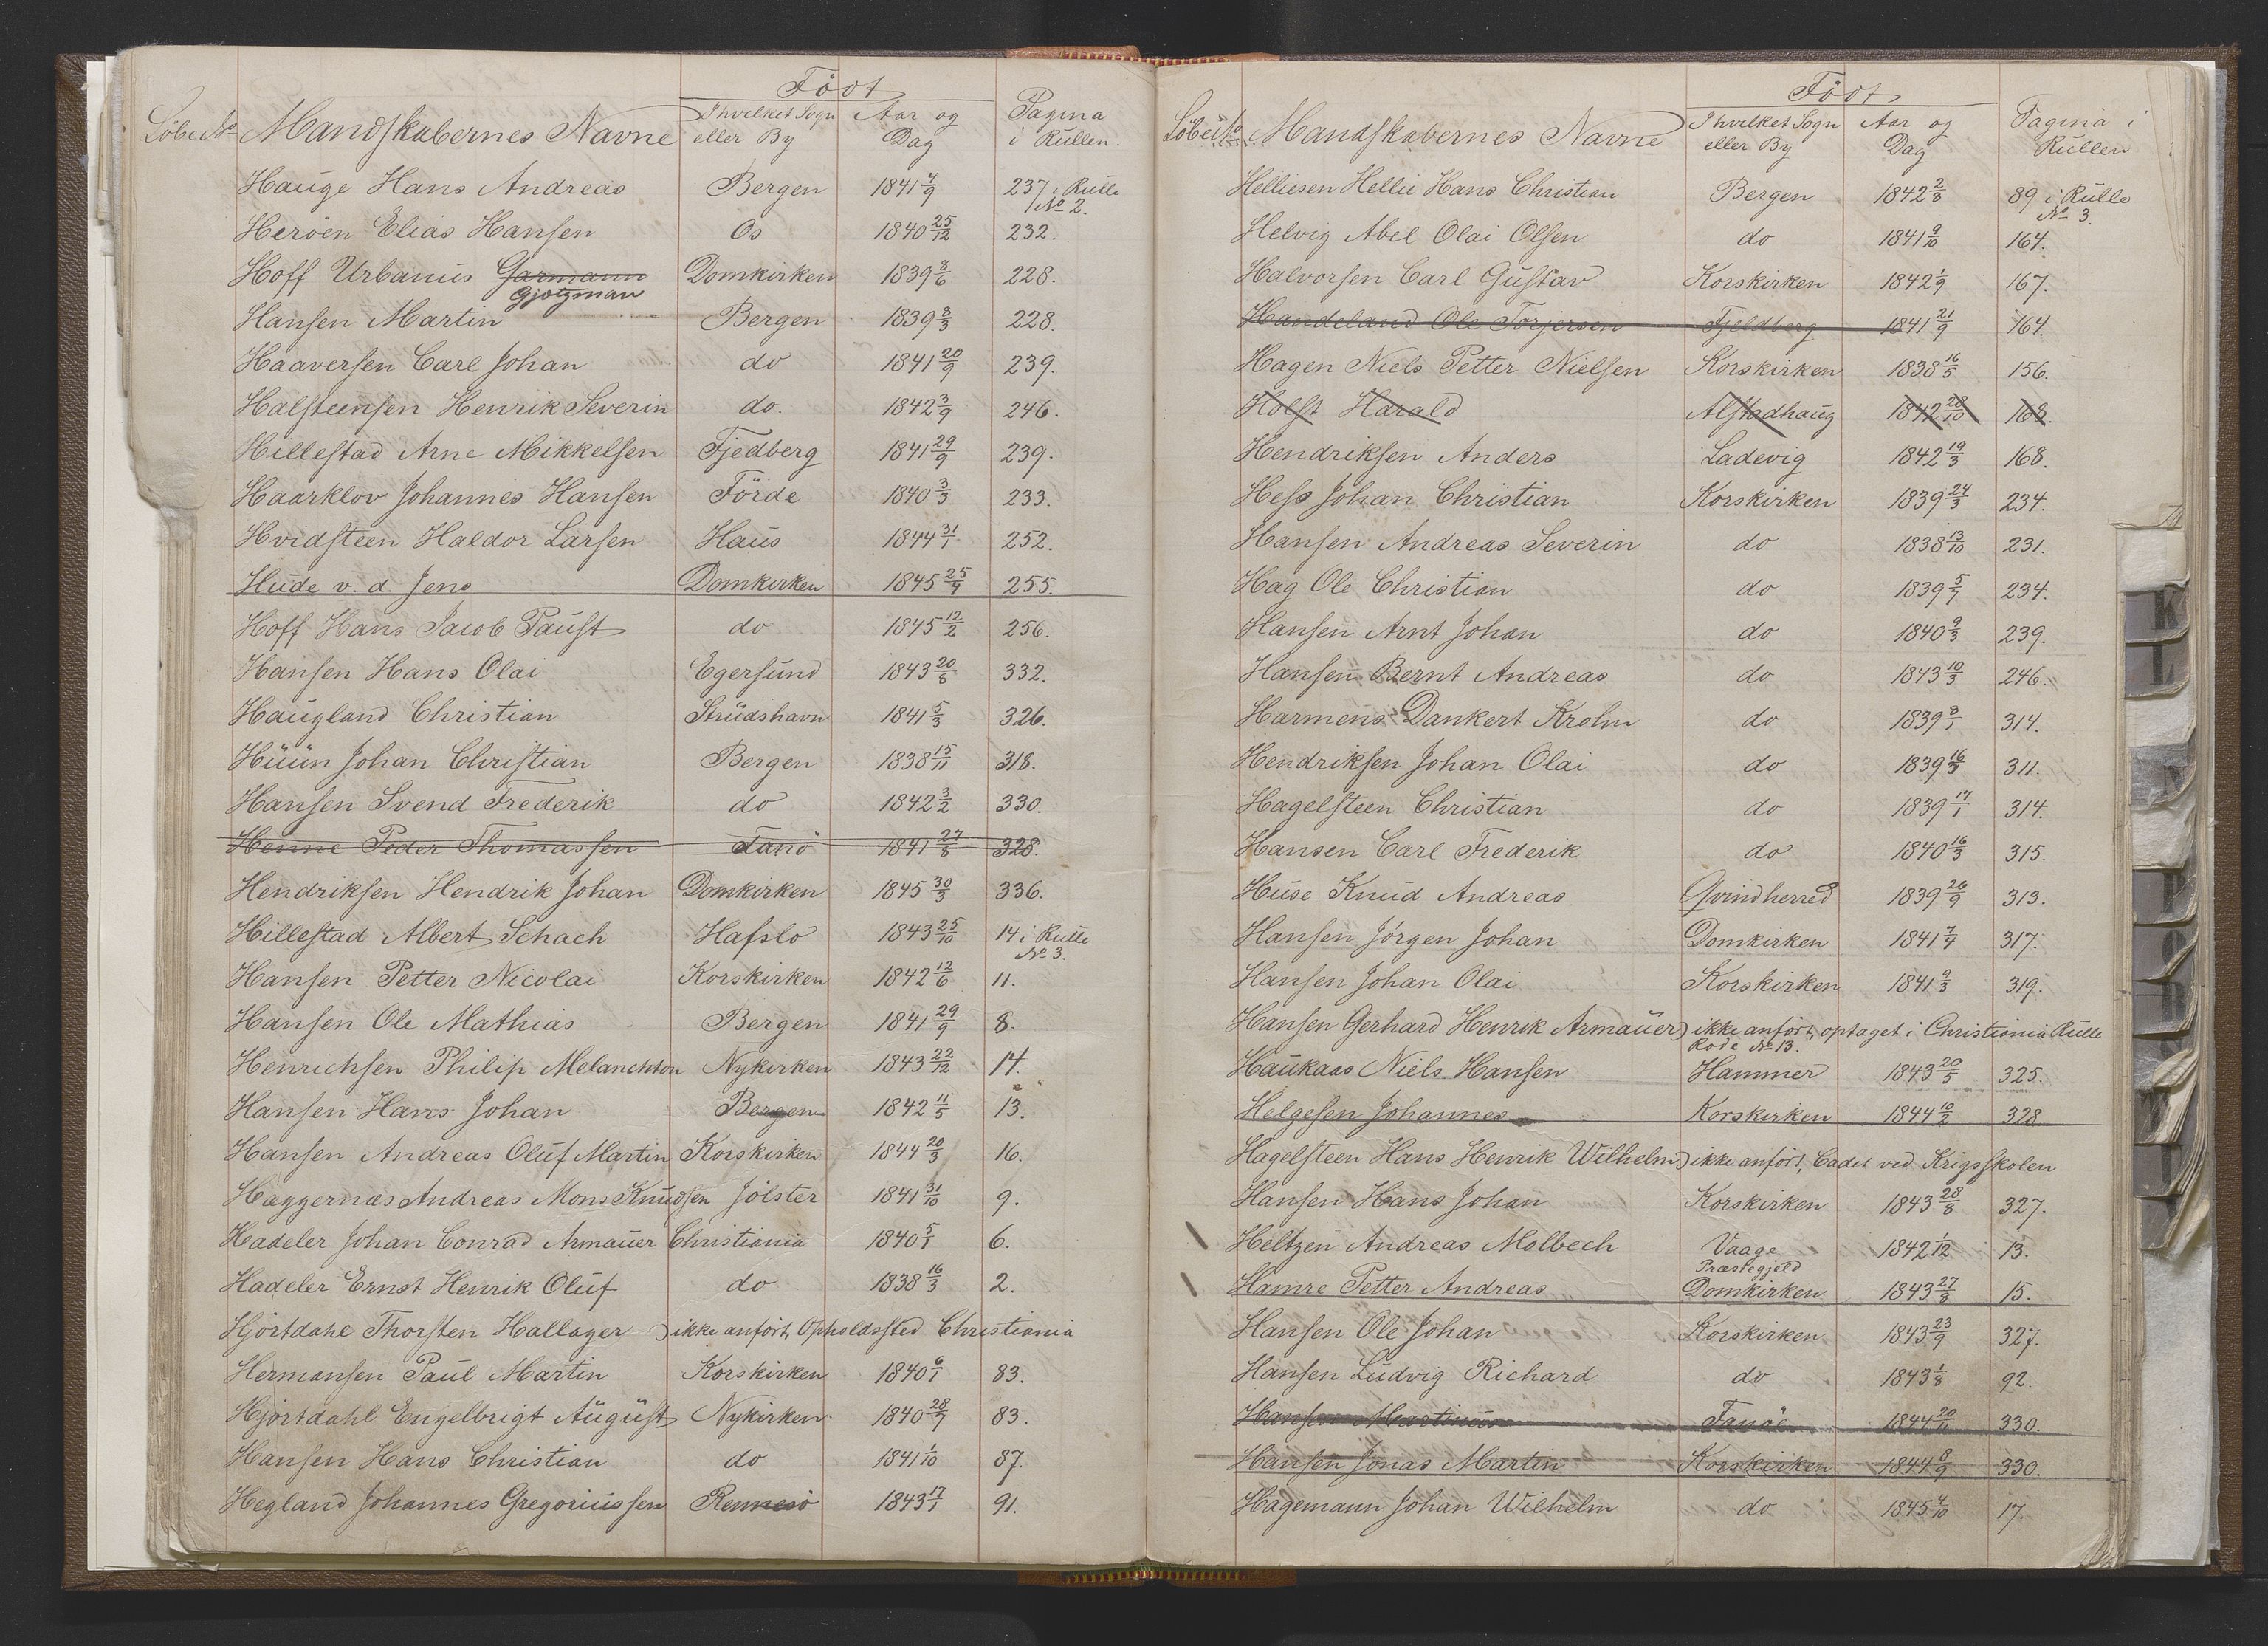 Födt
Löbe No Mandskabernes Navne I hvilket Sogn eller By Aar og Dag Pagina i Rullen.
Hauge Hans Andreas Bergen 1841 4/9 237 i Rulle No 2.
Heröen Elias Hansen Os 1840 25/12 232.
Hoff Urbanus Garmann Gjotzman Domkirken 1839 8/6 228.
Hansen Martin Bergen 1839 3/3 228.
Haaversen Carl Johan do 1841 20/9 239.
Halsteensen Henrik Severin do. 1842 3/9 246.
Hillestad Arne Mikkelsen Fjedberg 1841 29/9 239.
Haarklov Johannes Hansen Förde 1840 3/3 233.
Hvidsteen Haldor Larsen Haus 1844 31/1 252.
Hude v. d. Jens Domkirken 1845 25/4 255.
Hoff Hans Jacob Paust do 1845 12/2 256.
Hansen Hans Olai Egersund 1843 20/8 332.
Haugland Christian Strudshavn 1841 5/3 326.
Huun Johan Christian Bergen 1838 15/11 318.
Hansen Svend Frederik do 1842 3/2 330.
Henne Peder Thomassen Fanö 1841 27/8 328.
Hendriksen Hendrik Johan Domkirken 1845 30/3 336.
Hillestad Albert Schach Hafslo 1843 25/10 14 i Rulle No 3.
Hansen Petter Nicolai Korskirken 1842 12/6 11.
Hansen Ole Mathias Bergen 1841 29/9 8.
Henrichsen Philip Melanchton Nykirken 1843 22/12 14.
Hansen Hans Johan Bergen 1842 11/5 13.
Hansen Andreas Oluf Martin Korskirken 1844 20/3 16.
Hæggernæs Andreas Mons Knudsen Jölster 1841 31/10 9.
Hadeler Johan Conrad Armauer Christiania 1840 5/1 6.
Hadeler Ernst Henrik Oluf do 1838 16/3 2.
Hjortdahl Thorsten Hallager) ikke anfört, Opholdssted Christiania
Hermansen Paul Martin Korskirken 1840 6/1 83.
Hjortdahl Engelbrigt August Nykirken 1840 28/7 83.
Hansen Hans Christian do 1841 1/10 87.
Hegland Johannes Gregoriussen Rennesö 1843 17/1 91.
Födt
Löbe No Mandskabernes Navne I hvilket Sogn eller By Aar og Dag Pagina i Rullen
Helliesen Hellie Hans Christian Bergen 1842 2/8 89 i Rulle No 3.
Helvig Abel Olai Olsen do 1841 9/10 164.
Halvorsen Carl Gustav Korskirken 1842 1/9 167.
Handeland Ole Torjersen Fjeldberg 1841 21/9 164.
Hagen Niels Petter Nielsen Korskirken 1838 16/5 156.
Holst Harald Alstadhaug 1842 28/10 168.
Hendriksen Anders Ladevig 1842 19/3 168.
Hess Johan Christian Korskirken 1839 24/3 234.
Hansen Andreas Severin do 1838 13/10 231.
Hag Ole Christian do 1839 5/7 234.
Hansen Arnt Johan do 1840 9/3 239.
Hansen Bernt Andreas do 1843 10/3 246.
Harmens Dankert Krohn do 1839 8/1 314.
Hendriksen Johan Olai do 1839 16/3 311.
Hagelsteen Christian do 1839 17/1 314.
Hansen Carl Frederik do 1840 16/3 315.
Huse Knud Andreas Qvindherred 1839 26/9 313.
Hansen Jörgen Johan Domkirken 1841 7/4 317.
Hansen Johan Olai Korskirken 1841 9/3 319.
Hansen Gerhard Henrik Armauer) ikke anfört, optaget i Christiania Rulle
Rode No 13.
Haukaas Niels Hansen Hammer 1843 20/5 325.
Helgesen Johannes Korskirken 1844 10/2 328
Hagelsteen Hans Henrik Wilhelm) ikke anfört, Cadet ved Krigsskolen
Hansen Hans Johan Korskirken 1843 28/8 327.
Heltzen Andreas Molbech Vaage Præstegjeld 1842 1/12 13.
Hamre Petter Andreas Domkirken 1843 27/8 15.
Hansen Ole Johan Korskirken 1843 23/9 327.
Hansen Ludvig Richard do 1843 1/8 92.
Hansen Martinus Fanöe 1844 20/11 330.
Hansen Jonas Martin Korskirken 1844 8/9 330.
Hagemann Johan Wilhelm do 1845 4/10 17.
K
L
N
P
R